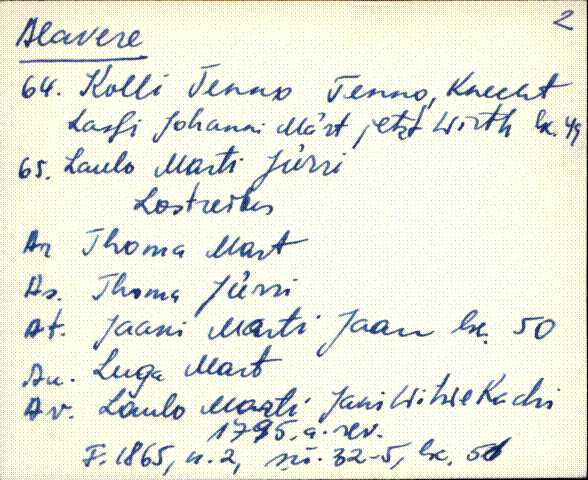 2
Alavere
64. Kolli Tenno Tenno, Knecht
Lassi Johanni Märt jetzt Wirth lk. 49
65. Laulo Marti Jürri
Lostreiber
Ar Thoma Mart
As. Thoma Jürri
At. Jaani Marti Jaan lk. 50
Au. Luga Mart
Av. Laulo Marti Jani Wittwe Kadri
1795. a. rev.
F. 1865, n. 2, sü. 32-5, lk. 51